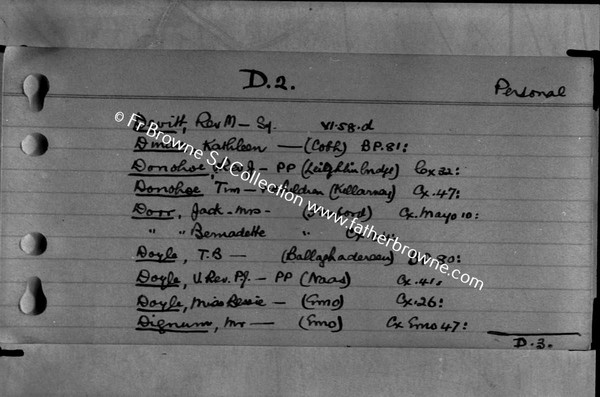 D.2.
Personal
Devitt, Rev M - Sj. VI.58.d
Kathleen — (Cobh) B P.81:
Donohoe, - PP (Leighlinbridge) Cox 32:
Donohoe Tim - children (Killarney) Cx.47:
Dorr, Jack - Mrs - Cx. Mayo 10:
" " Bernadette "
Doyle, T.B — (Ballaghadereen) B P.80:
Doyle, V. Rev. P.J. - PP (Naas) Cx.41:
Doyle, Miss Bessie - (Emo) Cx.26:
Dignum, Mr — (Emo) Cx Emo 47:
D.3.
© Fr Browne SJ Collection www.fatherbrowne.com